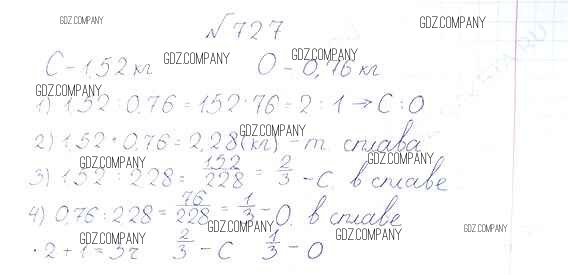 GDZ.COMPANY GDZ.COMPANY
№727
GDZ.COMPANY GDZ.COMPANY
С – 1,52 кг О – 0,76 кг
GDZ.COMPANY
1) 1,52 : 0,76 = 152 : 76 = 2 : 1 → С : О
GDZ.COMPANY
2) 1,52 + 0,76 = 2,28 (кг) – т. сплава
GDZ.COMPANY GDZ.COMPANY
3) 1,52 : 228 = 152/228 = 2/3 – С. в сплаве
4) 0,76 : 228 = 76/228 = 1/3 – О. в сплаве
GDZ.COMPANY GDZ.COMPANY GDZ.COMPANY GDZ.COMPANY
2 + 1 = 3ч 2/3 – С 1/3 – О